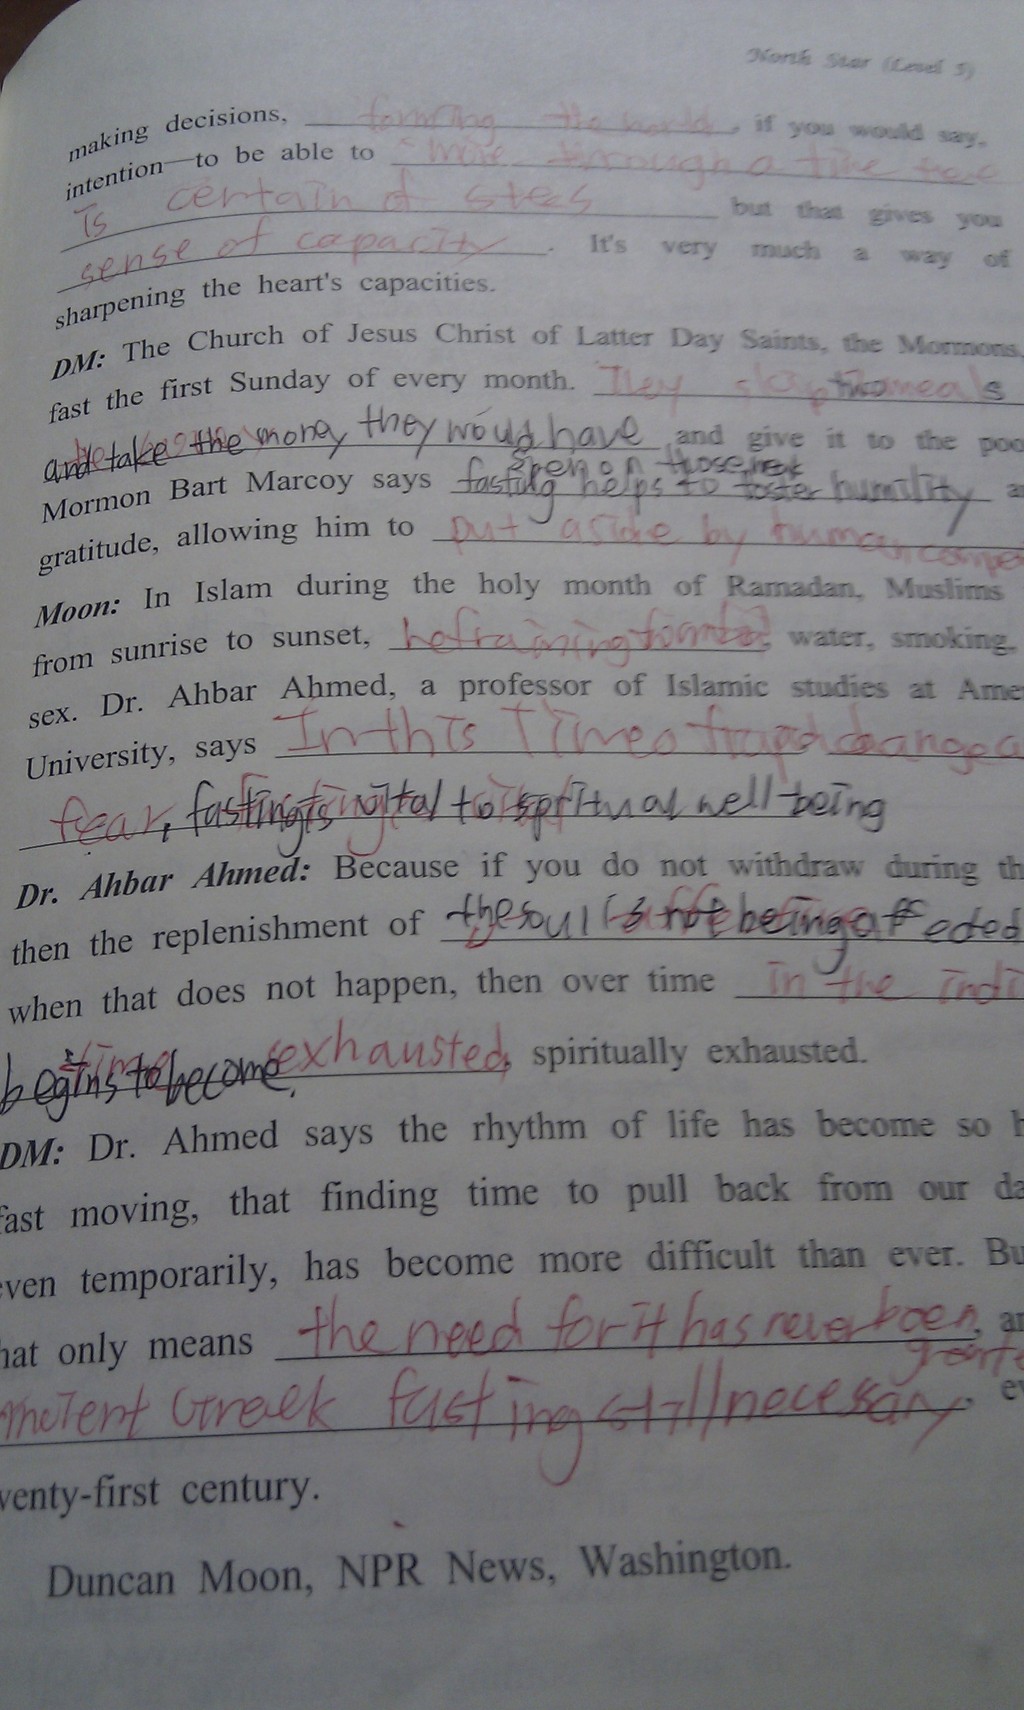 North Star (Level 5)
making decisions, forming the world, if you would say,
intention—to be able to move through a time
is certain of stees but that gives you
sense of capacity. It's very much a way of
sharpening the heart's capacities.
DM: The Church of Jesus Christ of Latter Day Saints, the Mormons,
fast the first Sunday of every month. They skip two meals
and take the money they would have and give it to the poo
spen on those
Mormon Bart Marcoy says fasting helps to foster humility
gratitude, allowing him to put aside by human
Moon: In Islam during the holy month of Ramadan, Muslims
from sunrise to sunset, water, smoking,
sex. Dr. Ahbar Ahmed, a professor of Islamic studies at Ame
University, says In this time of rapid change a
fear, fasting is vital to spritual well-being
Dr. Ahbar Ahmed: Because if you do not withdraw during th
then the replenishment of the soul is not being affected
when that does not happen, then over time in the indi
begins to become exhausted, spiritually exhausted.
DM: Dr. Ahmed says the rhythm of life has become so h
fast moving, that finding time to pull back from our da
even temporarily, has become more difficult than ever. Bu
hat only means the need for it has never been, an
greate
Ancient Greek fasting still necessary, ev
wenty-first century.
Duncan Moon, NPR News, Washington.